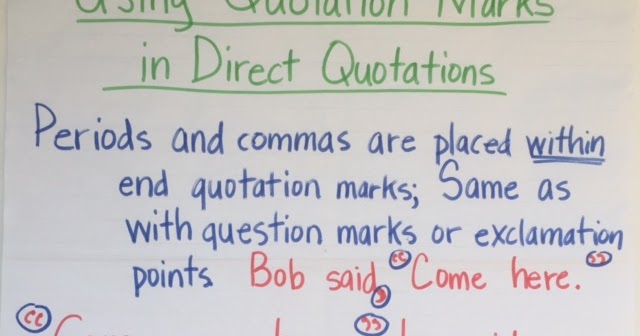 Using Quotation Marks
in Direct Quotations
Periods and commas are placed within
end quotation marks; Same as
with question marks or exclamation
points Bob said, “Come here.”
“ ”